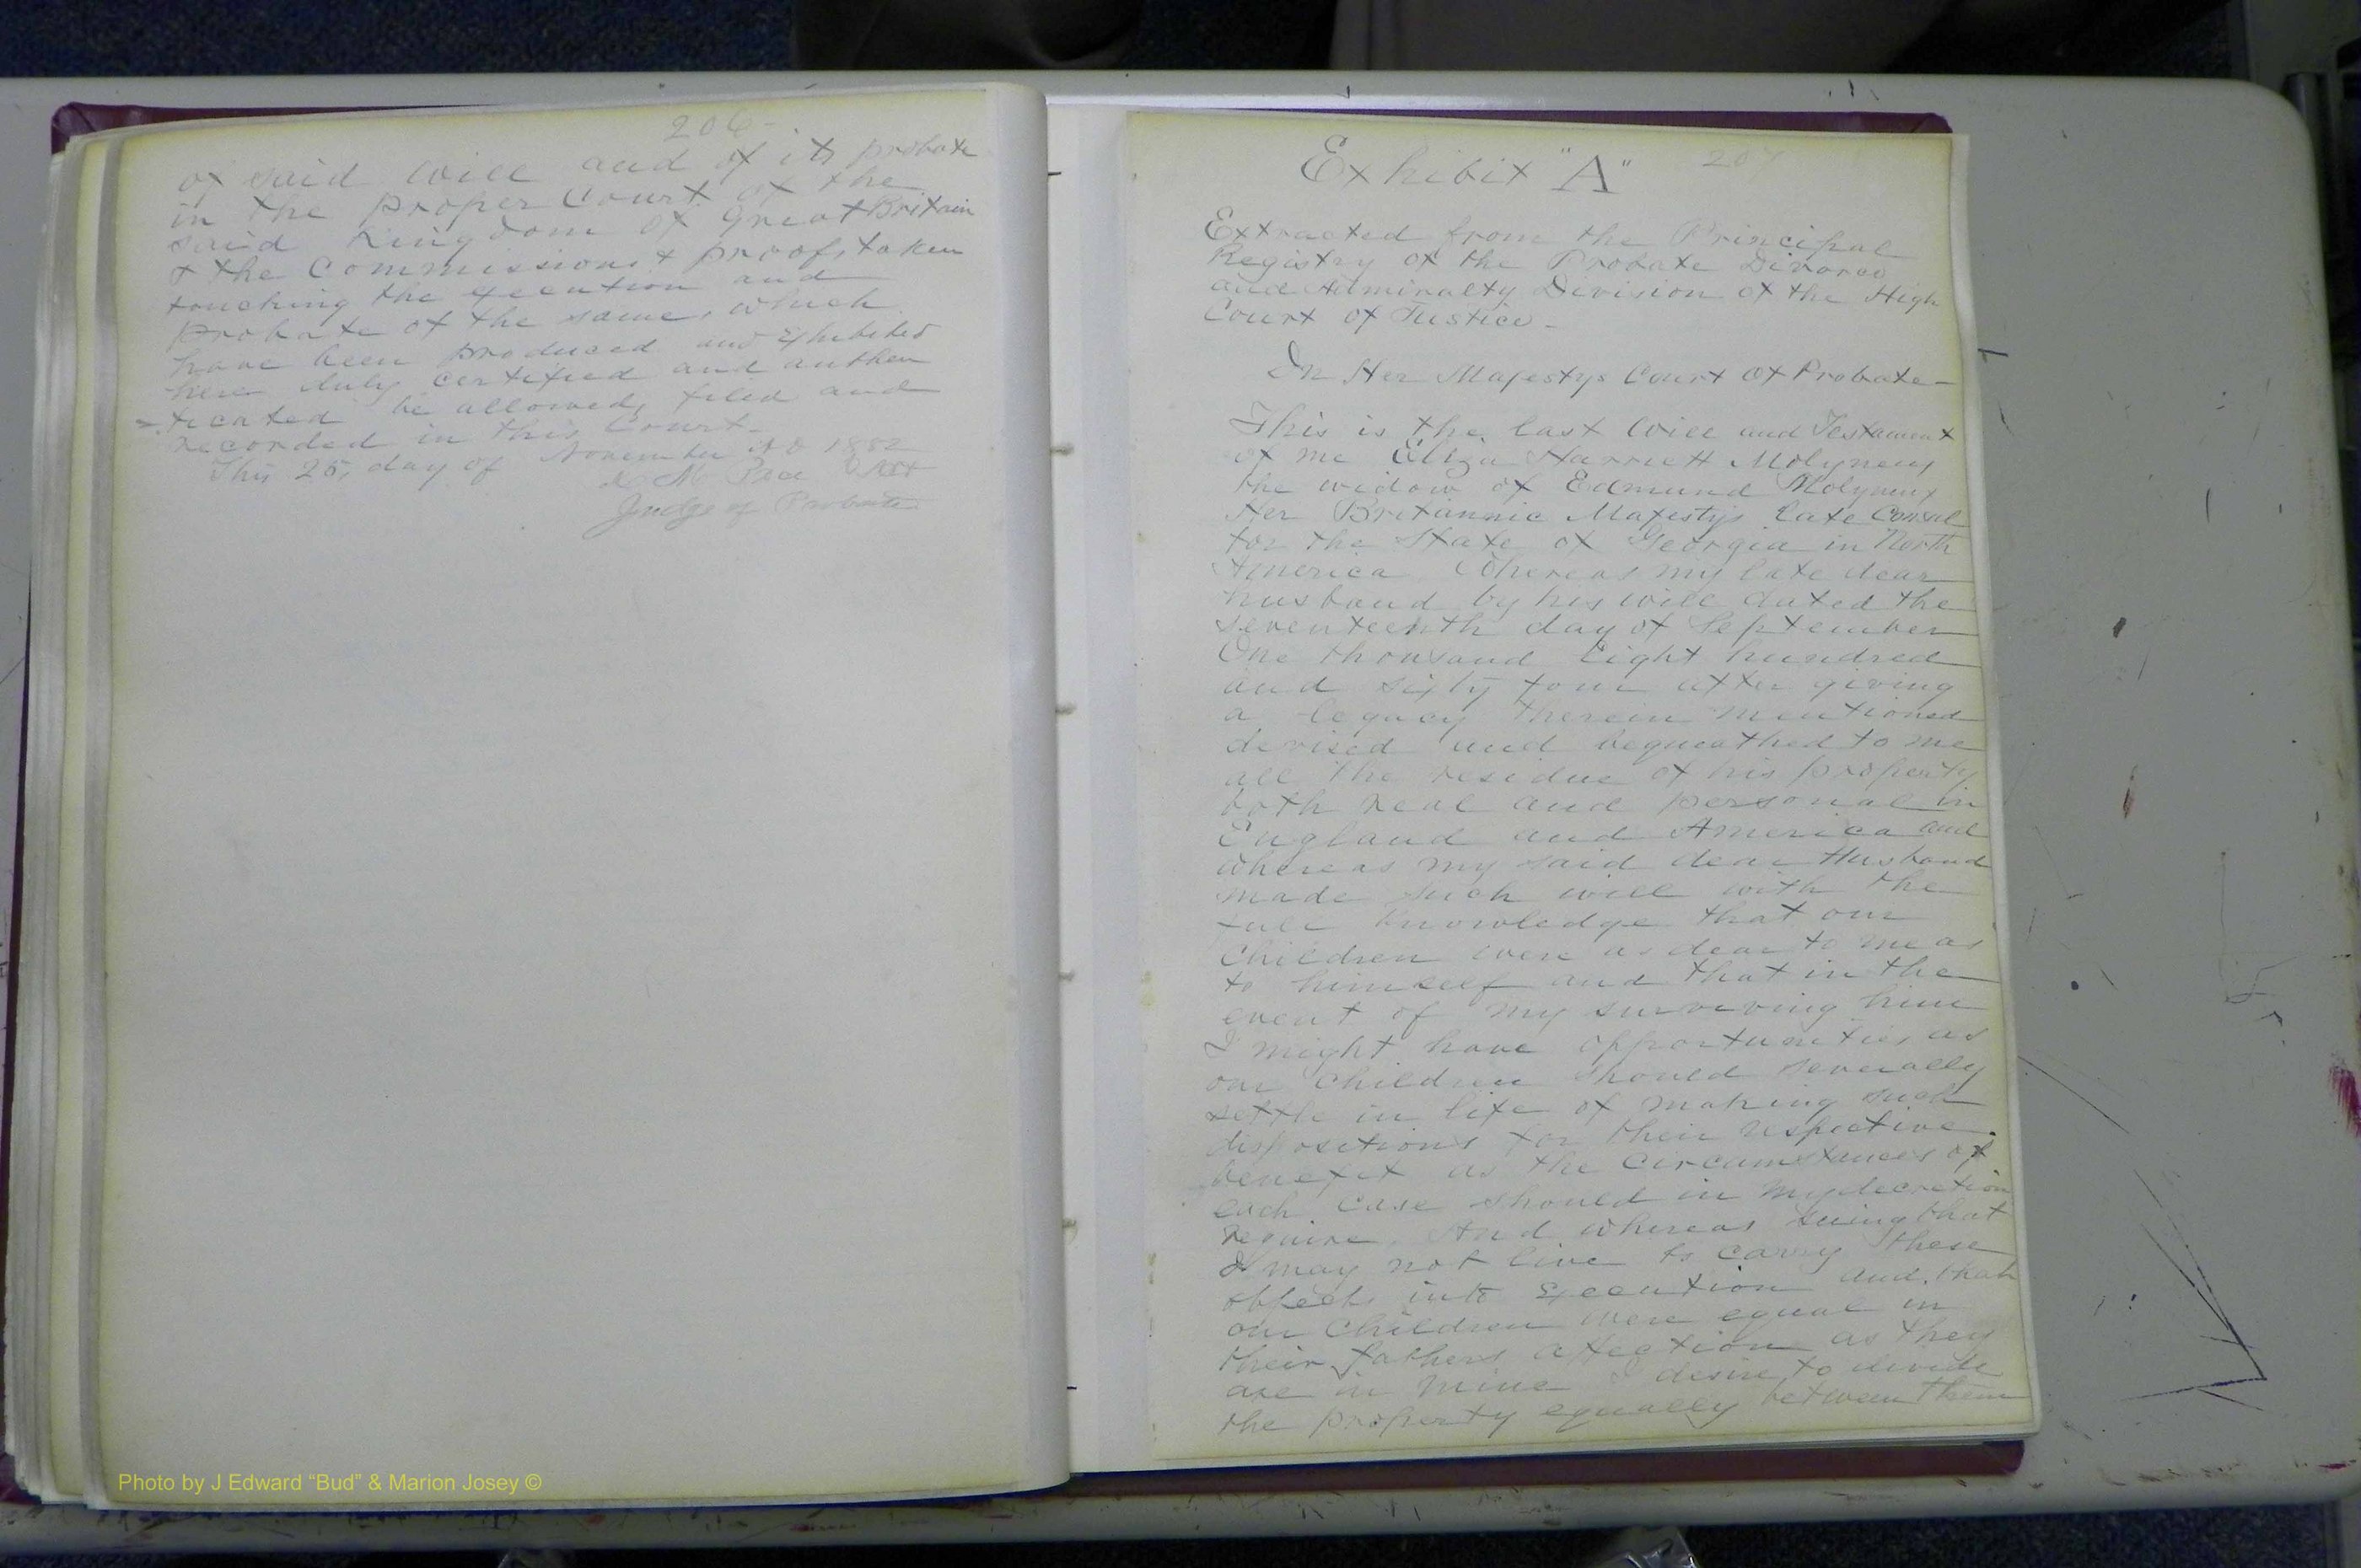 206-
of said will and of its probate
in the proper Court of the
said Kingdom of Great Britain
& the Commissions & proofs taken
touching the execution and
probate of the same, which
have been produced and exhibited
here duly certified and authen
-ticated be allowed, filed and
recorded in this Court-
This 25, day of November AD 1882
Judge of Probate
Exhibit "A"
207
Extracted from the Principal
Registry of the Probate Divorce
and Admiralty Division of the High
Court of Justice-
In Her Majestys Court of Probate-
This is the last Will and Testament
of me Eliza Harriett Molyneux
the widow of Edmund Molyneux
Her Britannic Majestys late Consul
for the State of Georgia in North
America Whereas my late dear
husband by his will dated the
seventeenth day of September
One thousand Eight hundred
and sixty four after giving
a legacy therein mentioned
devised and bequeathed to me
all the residue of his property
both real and personal in
England and America and
whereas my said dear Husband
made such will with the
full knowledge that our
Children were as dear to me as
to himself and that in the
event of my surviving him
I might have opportunities as
our children should severally
settle in life of making such
dispositions for their respective
benefit as the Circumstances of
each case should in my decretion
require, And whereas seeing that
I may not live to carry these
objects into execution and that
our Children were equal in
their fathers affection as they
are in mine I desire to divide
the property equally between them
Photo by J Edward “Bud” & Marion Josey ©